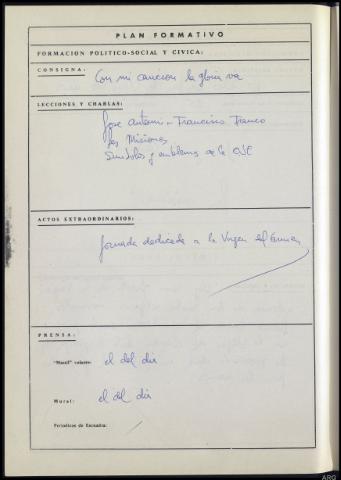 PLAN FORMATIVO
FORMACION POLITICO-SOCIAL Y CIVICA:
CONSIGNA: Con mi canción la gloria va
LECCIONES Y CHARLAS:
José Antonio - Francisco Franco
Las Misiones
Símbolos y emblemas de la OJE
ACTOS EXTRAORDINARIOS:
Jornada dedicada a la Virgen del Carmen
PRENSA:
"Mástil" volante: el del día
Mural: el del día
Periódicos de Escuadra:
ARG